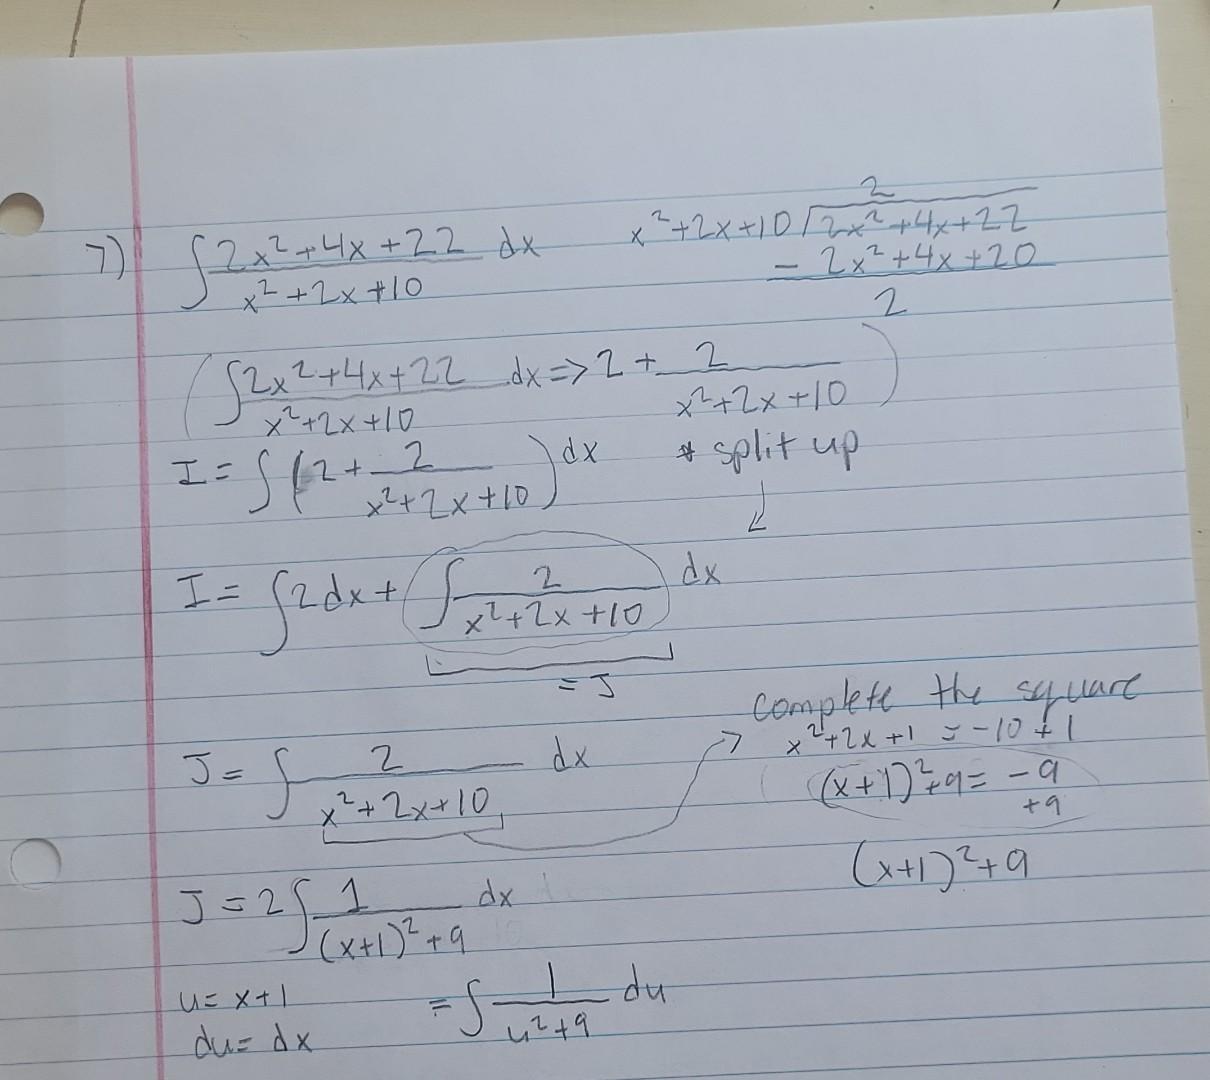 7) ∫ 2x²+4x+22 / x²+2x+10 dx
2
x²+2x+10 ) 2x²+4x+22
- 2x²+4x+20
2
( ∫ 2x²+4x+22 / x²+2x+10 dx => 2 + 2 / x²+2x+10 )
I = ∫ ( 2 + 2 / x²+2x+10 ) dx
* split up
I = ∫ 2dx + ∫ 2 / x²+2x+10 dx
= J
J = ∫ 2 / x²+2x+10 dx
complete the square
x²+2x+1 = -10+1
(x+1)²+9 = -9
+9
(x+1)²+9
J = 2 ∫ 1 / (x+1)²+9 dx
u = x+1
du = dx
= ∫ 1 / u²+9 du